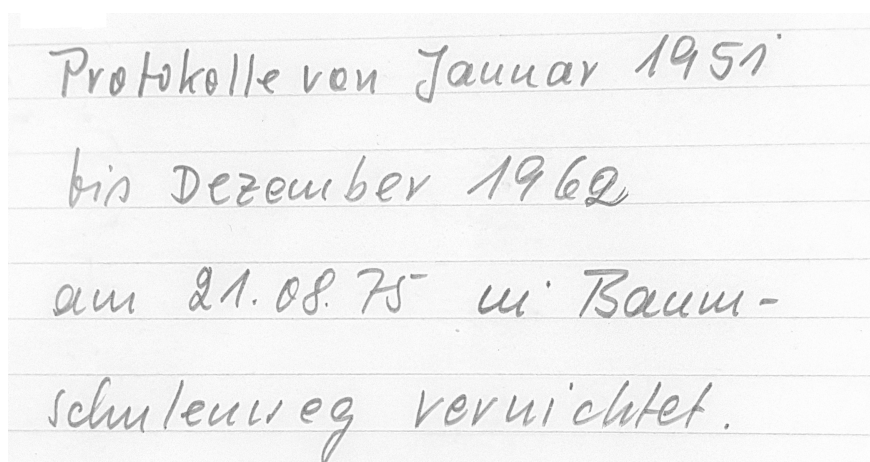 Protokolle von Januar 1951
bis Dezember 1962
am 21.08.75 in Baum-
schulenweg vernichtet.